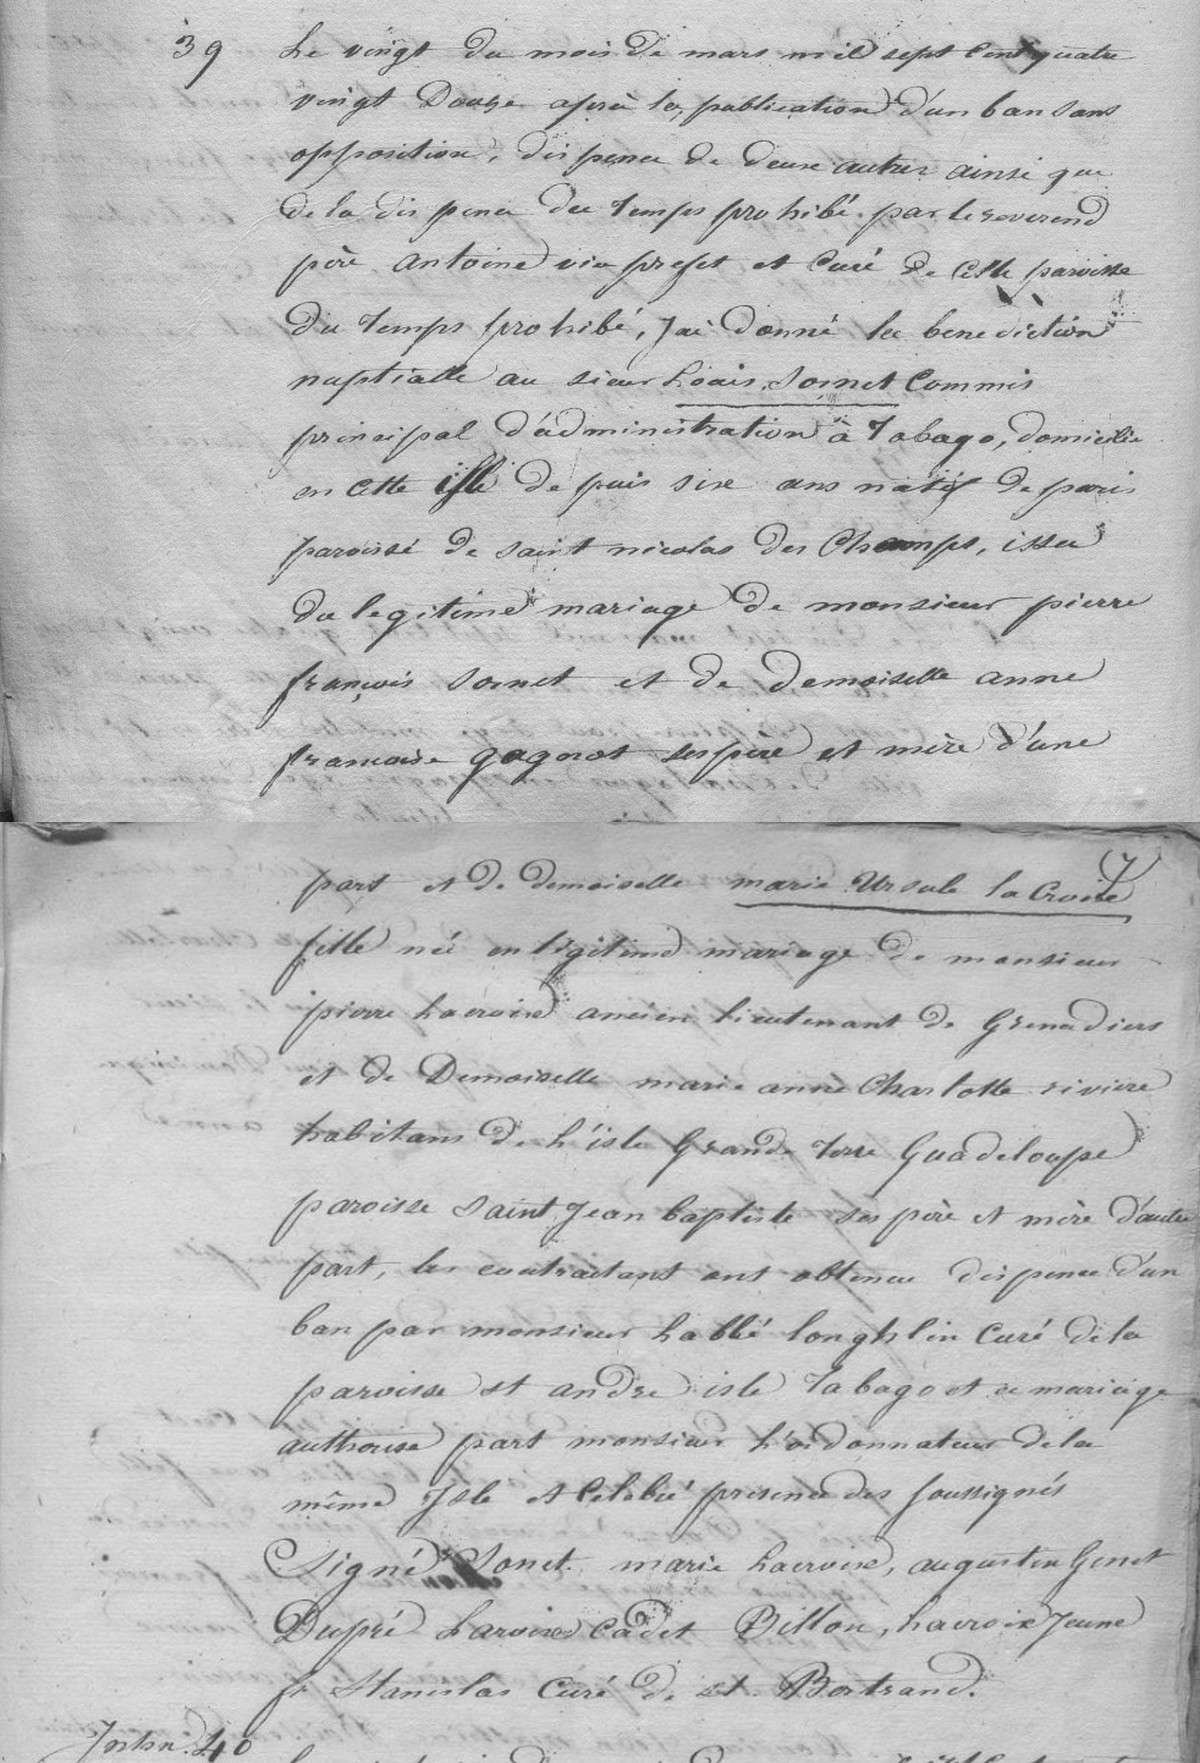 39 Le vingt du mois de mars mil sept cent quatre
vingt Douze après la publication d'un ban sans
opposition, dispence de deux autres ainsi que
de la dispence du temps prohibé par le reverend
père antoine vice prefet et Curé de Cette paroisse
Du temps prohibé, J'ai donné la benediction
nuptialle au sieur Louis Sornet Commis
principal d'administration à Tabago, domicilié
en cette isle depuis six ans natif de paris
paroisse de saint nicolas des Champs, issu
du legitime mariage de monsieur pierre
françois sornet et de demoiselle anne
francoise gagnot ses père et mère d'une
(7)
part et de demoiselle marie Ursule la Croix
fille née en légitime mariage de monsieur
pierre Lacroix ancien lieutenant de Grenadiers
et de Demoiselle marie anne Charlotte riviere
habitans de L'isle Grande Terre Guadeloupe
paroisse Saint Jean baptiste ses père et mère d'autre
part, les contractant ont obtenue dispence d'un
ban par monsieur Labbé Longhlin Curé de la
paroisse st andre isle Tabago et ce mariage
authorise part monsieur L'ordonnateur de la
même Isle et Celebré présence des soussignés
Signé Sonet. marie Lacroix, augustin Genet
Dupré Laroix Cadet Billon, Lacroix Jeune
fr Stanislas Curé de st. Bertrand.
40